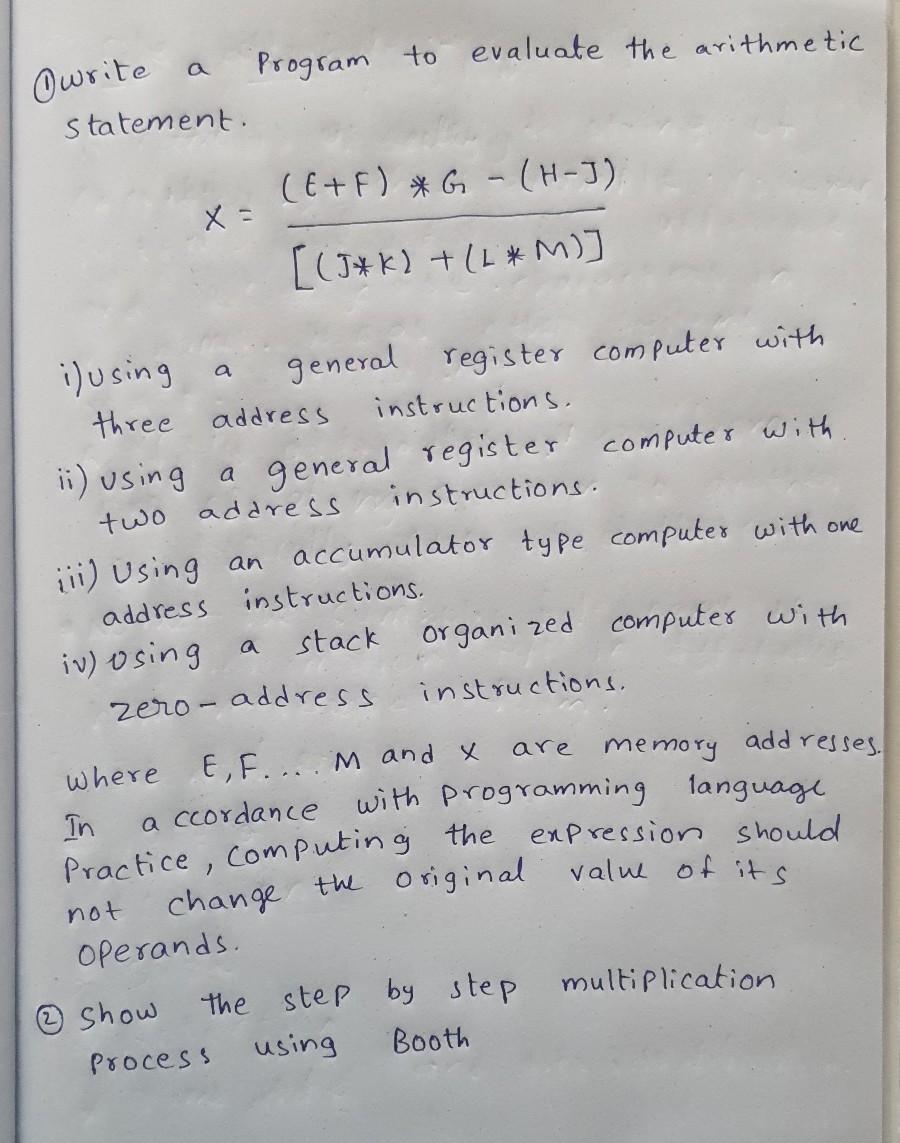 ① write a Program to evaluate the arithmetic
statement.
(E+F) * G - (H-J)
X =
[(J*K) + (L * M)]
i) using a general register computer with
three address instructions.
ii) using a general register computer with
two address instructions.
iii) Using an accumulator type computer with one
address instructions.
iv) Using a stack organized computer with
zero-address instructions.
where E, F.... M and X are memory addresses.
In accordance with programming language
Practice, Computing the expression should
not change the original value of its
operands.
② Show the step by step multiplication
Process using Booth